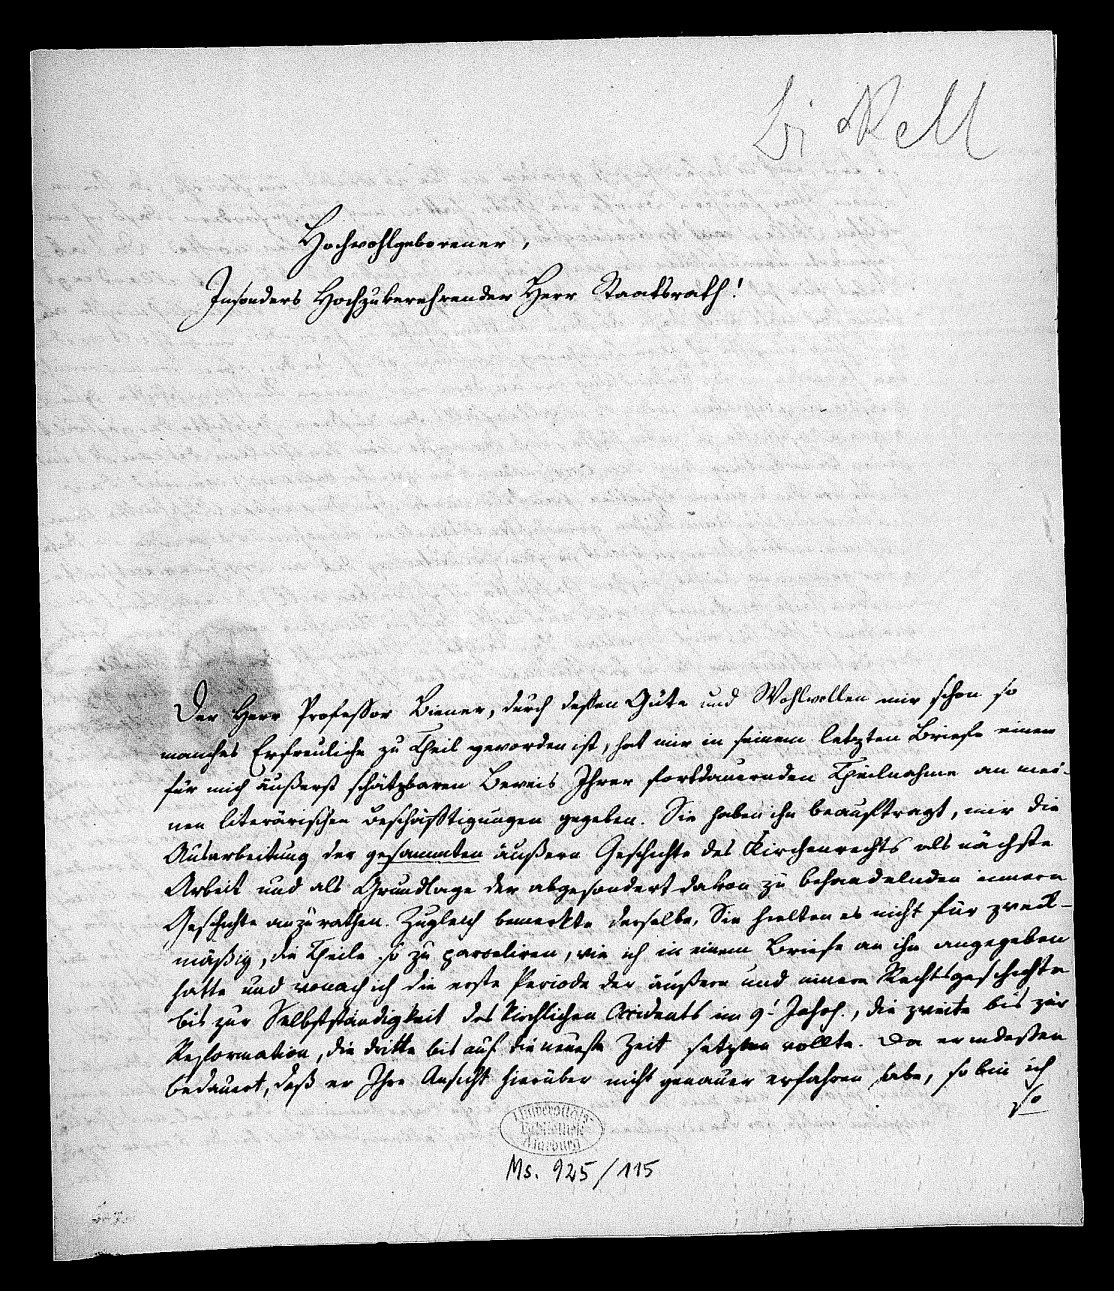 Bickell
Hochwohlgeborener,
Insonders Hochzuverehrender Herr Staatsrath!
Der Herr Professor Biener, durch deßen Güte und Wohlwollen mir schon so
manches Erfreuliche zu Theil geworden ist, hat mir in seinem letzten Briefe einen
für mich äußerst schätzbaren Beweis Ihrer fortdauernden Theilnahme an mei-
nen literärischen Beschäftigungen gegeben. Sie haben ihn beauftragt, mir die
Ausarbeitung der gesammten äußern Geschichte des Kirchenrechts als nächste
Arbeit und als Grundlage der abgesondert davon zu behandelnden innern
Geschichte anzurathen. Zugleich bemerkte derselbe, Sie hielten es nicht für zweck-
mäßig, die Theile so zu parceliren, wie ich in einem Briefe an ihn angegeben
hatte und wonach ich die erste Periode der äußern und innern Rechtsgeschichte
bis zur Selbstständigkeit des kirchlichen Occidents im 9. Jahrh., die zweite bis zur
Reformation, die dritte bis auf die neueste Zeit setzen wollte. Da er indeßen
bedauert, daß er Ihre Ansicht hierüber nicht genauer erfahren habe, so bin ich
so
Universitäts
Bibliothek
Marburg
Ms. 925/115